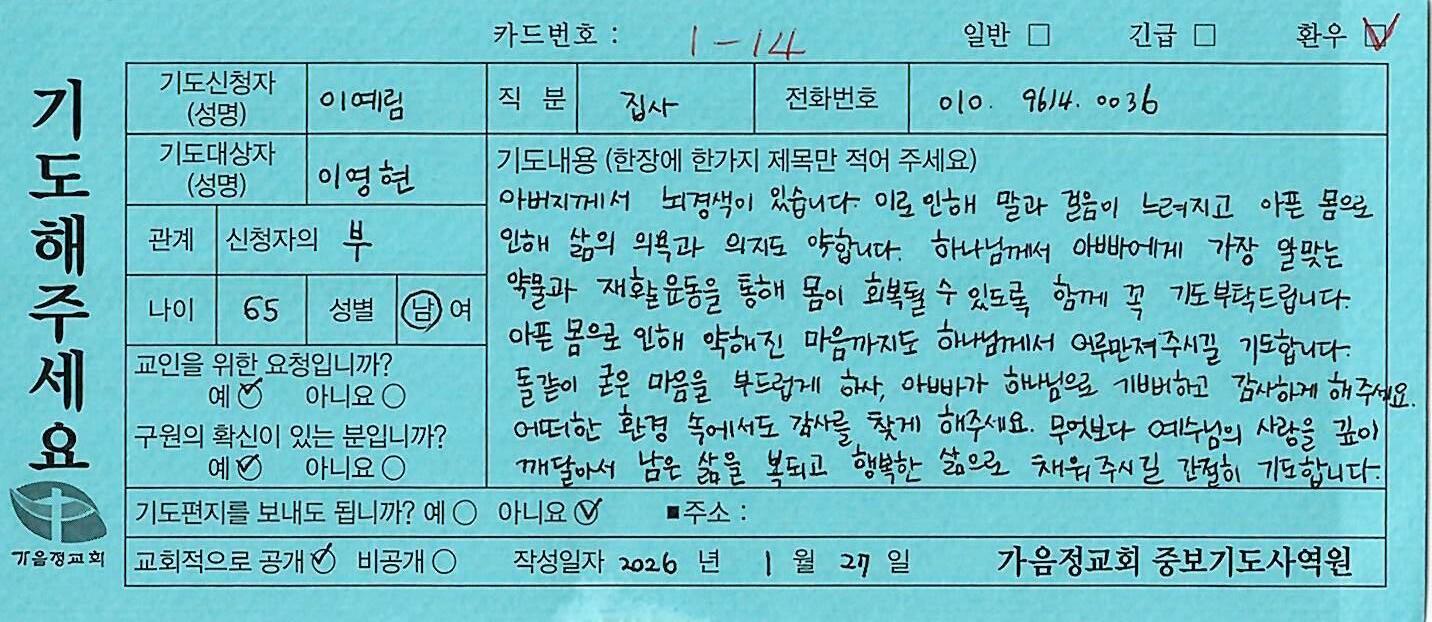 카드번호 : 1-14 일반 □ 긴급 □ 환우 ☑
기도해주세요
기도신청자 (성명) 이예림 직 분 집사 전화번호 010. 9614. 0036
기도대상자 (성명) 이영현
관계 신청자의 부
나이 65 성별 남 여
교인을 위한 요청입니까?
예 ☑ 아니요 ○
구원의 확신이 있는 분입니까?
예 ☑ 아니요 ○
기도내용 (한장에 한가지 제목만 적어 주세요)
아버지께서 뇌경색이 있습니다. 이로 인해 말과 걸음이 느려지고 아픈 몸으로
인해 삶의 의욕과 의지도 약합니다. 하나님께서 아빠에게 가장 알맞는
약물과 재활운동을 통해 몸이 회복될 수 있도록 함께 꼭 기도부탁드립니다.
아픈 몸으로 인해 약해진 마음까지도 하나님께서 어루만져주시길 기도합니다.
돌같이 굳은 마음을 부드럽게 하사, 아빠가 하나님으로 기뻐하고 감사하게 해주세요.
어떠한 환경 속에서도 감사를 찾게 해주세요. 무엇보다 예수님의 사랑을 깊이
깨달아서 남은 삶을 복되고 행복한 삶으로 채워주시길 간절히 기도합니다.
기도편지를 보내도 됩니까? 예 ○ 아니요 ☑ ■주소 :
교회적으로 공개 ☑ 비공개 ○ 작성일자 2026 년 1 월 27 일 가음정교회 중보기도사역원
가음정교회